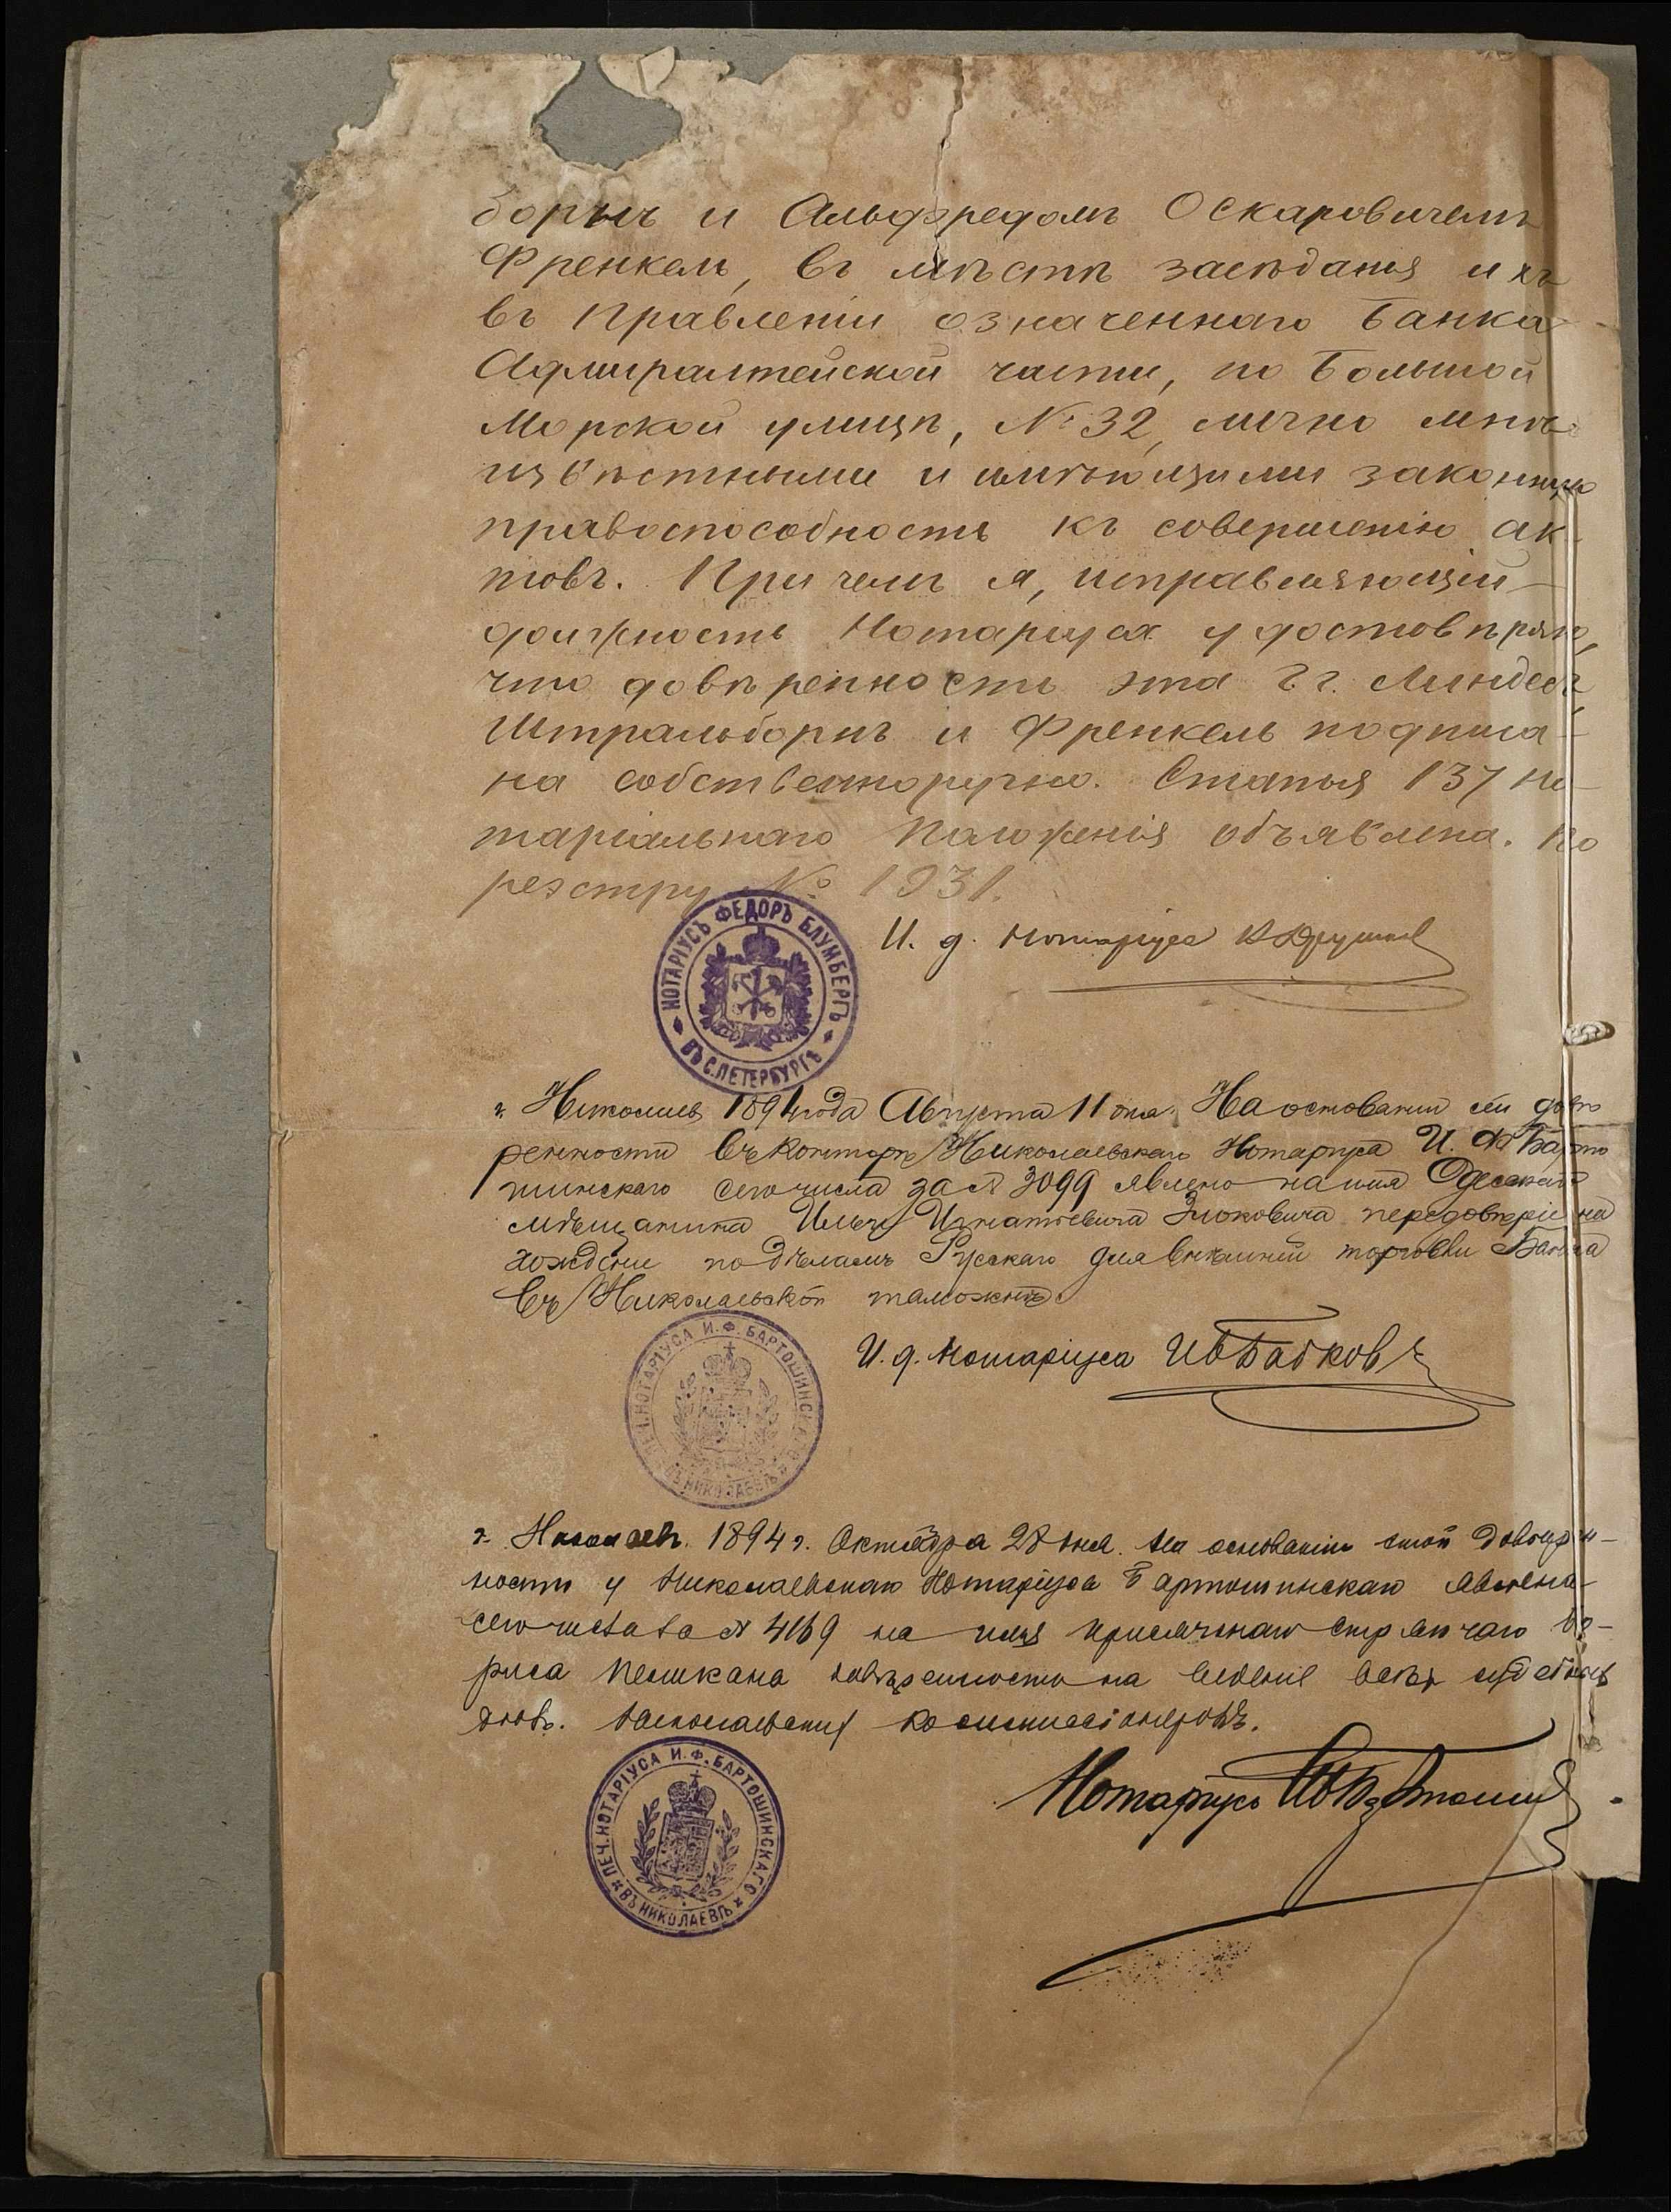 борнъ и Альфредомъ Оскаровичемъ
Френкель, въ мѣстѣ засѣданія ихъ
въ Правленіи означеннаго Банка
Адмиралтейской части, по Большой
Морской улицѣ, № 32, лично мнѣ
извѣстными и имѣющими законную
правоспособность къ совершенію ак-
товъ. При чемъ я, исправляющій
должность Нотаріуса удостовѣряю,
что довѣренность эта г.г. Линдесъ,
Штральборнъ и Френкель подписа-
на собственноручно. Статья 137 Но-
таріальнаго Положенія объявлена. По
реэстру № 1931.
И. д. Нотаріуса
НОТАРІУСЪ ФЕДОРЪ БЛУМБЕРГЪ
ВЪ С.ПЕТЕРБУРГѢ
г. Николаевъ 1894 года Августа 11 дня. На основаніи сей довѣ
ренности въ конторѣ Николаевскаго Нотаріуса И. Ф. Барто
шинскаго сего числа за № 3099 явлено на имя Одесскаго
мѣщанина Ильи Игнатьевича передовѣріе на
хожденіе по дѣламъ Русскаго для внѣшней торговли Банка
въ Николаевской таможнѣ.
И. д. Нотаріуса ИБабковъ
ПЕЧ. НОТАРІУСА И. Ф. БАРТОШИНСКАГО
ВЪ НИКОЛАЕВѢ
г. Николаевъ. 1894 г. Октября 28 дня. На основаніи этой довѣрен-
ности у Николаевскаго Нотаріуса Бартошинскаго явлена
сего числа за № 4169 на имя присяжнаго стряпчаго Бо-
риса довѣренность на веденіе всѣхъ судебныхъ
дѣлъ. Николаевских коммиссіонеровъ.
Нотаріусъ
ПЕЧ. НОТАРІУСА И. Ф. БАРТОШИНСКАГО
ВЪ НИКОЛАЕВѢ